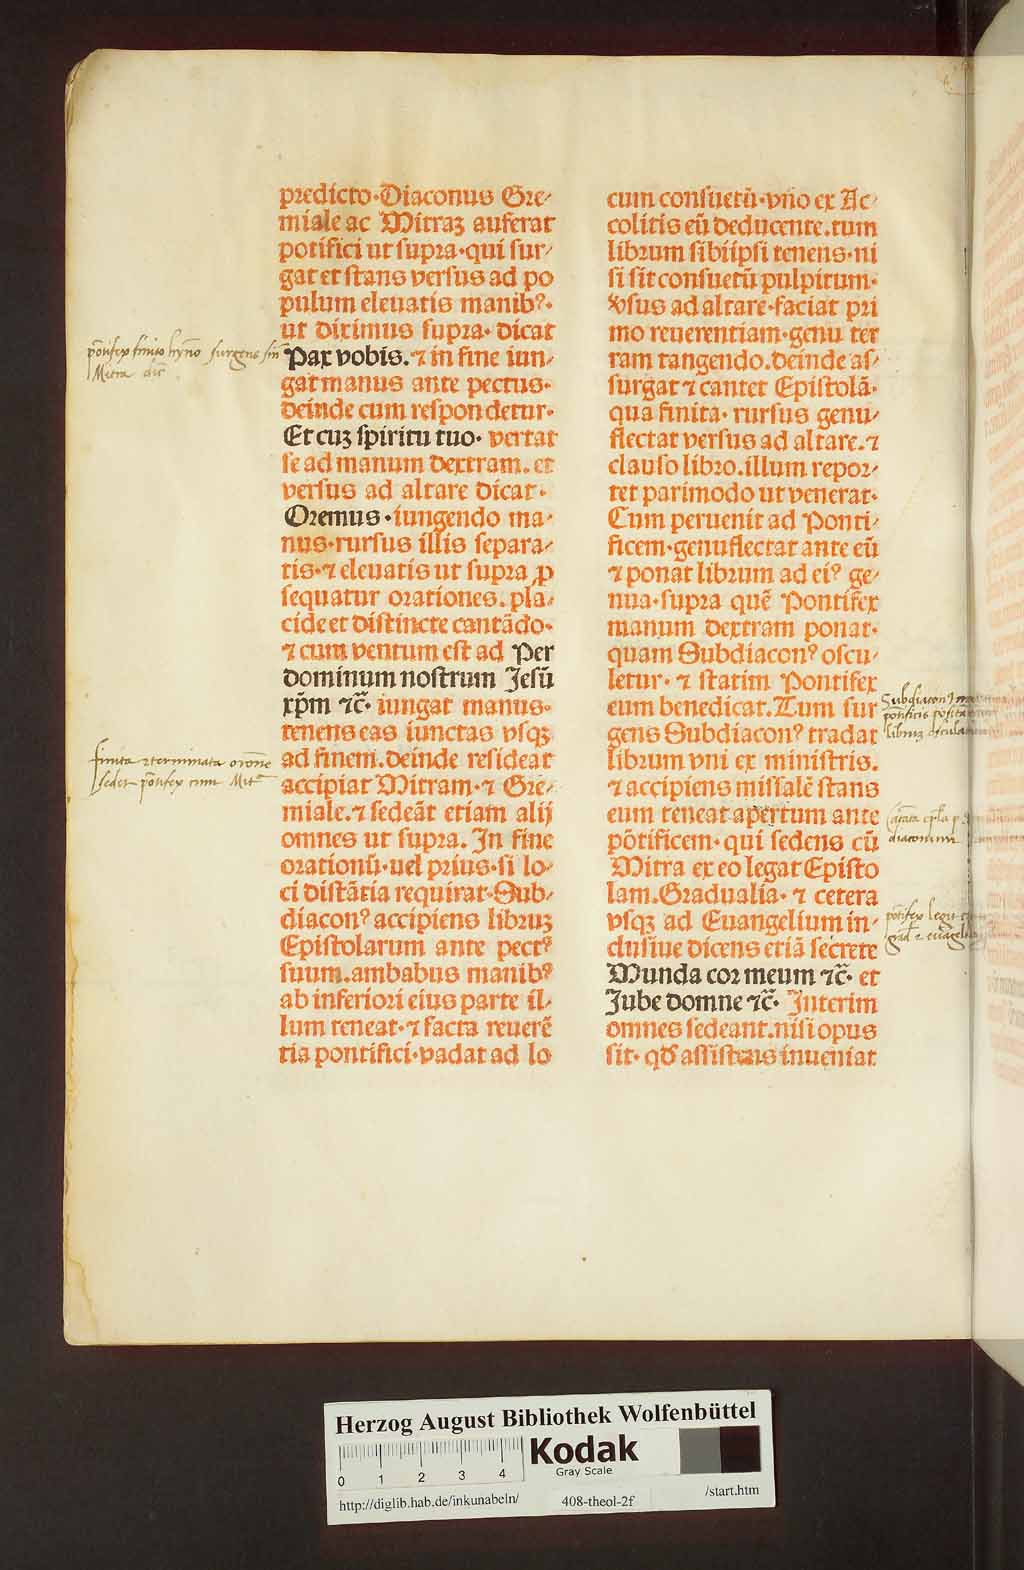 predicto·Diaconus Gre⸗
miale ac Mitraʒ auferat
pōtifici ut supra·qui sur⸗
gat et stans versus ad po
pulum eleuatis manib⁹·
ut diximus supra· dicat
Pax vobis. ⁊ in fine iun⸗
gat manus ante pectus·
deinde cum respondetur·
Et cuʒ spiritu tuo· vertat
se ad manum dextram. et
versus ad altare dicat·
Oremus·iungendo ma⸗
nus·rursus illis separa⸗
tis·⁊ eleuatis ut supra ꝓ
sequatur orationes. pla⸗
cide et distincte cantādo·
⁊ cum ventum est ad Per
dominum nostrum Jesū
xp̄m ⁊c̄· iungat manus·
tenens eas iunctas vsqʒ
ad finem. deinde resideat
accipiat Mitram·⁊ Gre⸗
miale. ⁊ sedeāt etiam alij
omnes ut supra. In fine
orationū·uel prius·si lo⸗
ci distātia requirat·Sub⸗
diacon⁹ accipiens libruʒ
Epistolarum ante pect⁹
suum.ambabus manib⁹
ab inferiori eius parte il⸗
lum teneat·⁊ facta reuerē
tia pontifici·vadat ad lo
cum consuetū·vno ex Ac⸗
colitis eū deducente.tum
librum sibiipsi tenens·ni
si sit consuetū pulpitum·
v̓sus ad altare·faciat pri
mo reuerentiam·genu ter
ram tangendo.deinde as⸗
surgat ⁊ cantet Epistolā·
qua finita· rursus genu⸗
flectat versus ad altare.⁊
clauso libro.illum repor⸗
tet parimodo ut venerat·
Cum peruenit ad Ponti⸗
ficem·genuflectat ante eū
⁊ ponat librum ad ei⁹ ge⸗
nua·supra quē Pontifex
manum dextram ponat·
quam Subdiacon⁹ oscu⸗
letur· ⁊ statim Pontifex
eum benedicat. Tum sur
gens Subdiacon⁹ tradat
librum vni ex ministris.
⁊ accipiens missalē stans
eum teneat apertum ante
pōtificem· qui sedens cū
Mitra ex eo legat Episto
lam. Gradualia· ⁊ cetera
vsqʒ ad Euangelium in⸗
clusiue dicens etiā secrete
Munda cor meum ⁊c̄· et
Jube domne ⁊c̄· Interim
omnes sedeant.nisi opus
sit· qd̓ assistens inueniat
pōntifex finito hyn̄o surgens sin̄
Mitra dic̄
finita ⁊ terminata orōne
sedet pōntifex cum Mit̄
Subdiacon
pontificis
libruʒ oscula
diaconum
pōntifex legit
Herzog August Bibliothek Wolfenbüttel
0 1 2 3 4
Kodak
Gray Scale
http://diglib.hab.de/inkunabeln/ 408-theol-2f /start.htm